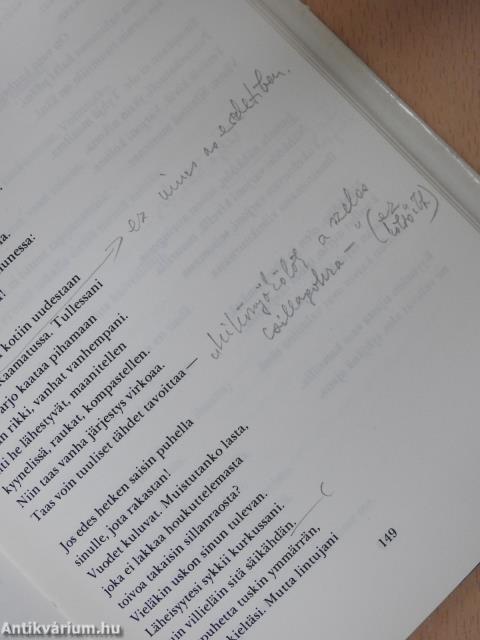 a.
unessa:
!
kotiin uudestaan
Raamatussa. Tullessani
arjo kaataa pihamaan
n rikki, vanhat vanhempani.
ti he lähestyvät, maanitellen
kyynelissä, raukat, kompastellen.
Niin taas vanha järjestys virkoaa.
Taas voin tuuliset tähdet tavoittaa —
Jos edes hetken saisin puhella
sinulle, jota rakastan!
Vuodet kuluvat. Muistutanko lasta,
joka ei lakkaa houkuttelemasta
toivoa takaisin sillanraosta?
Vieläkin uskon sinun tulevan.
Läheisyytesi sykkii kurkussani.
in villieläin sitä säikähtän,
puhetta tuskin ymmärrän,
kieltäsi. Mutta lintujani
ez nincs az eredetiben.
a szeles
csillagokra — (ez
149
Antikvárium.hu